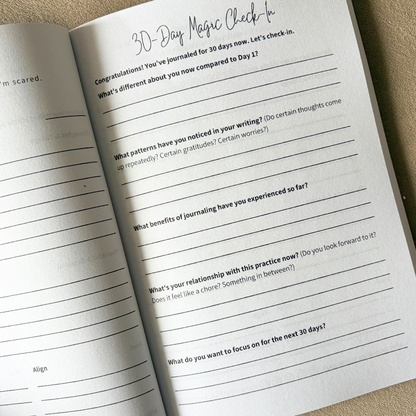 'm scared.
Align
30-Day Magic Check-In
Congratulations! You've journaled for 30 days now. Let's check-in.
What's different about you now compared to Day 1?
What patterns have you noticed in your writing? (Do certain thoughts come
up repeatedly? Certain gratitudes? Certain worries?)
What benefits of journaling have you experienced so far?
What's your relationship with this practice now? (Do you look forward to it?
Does it feel like a chore? Something in between?)
What do you want to focus on for the next 30 days?